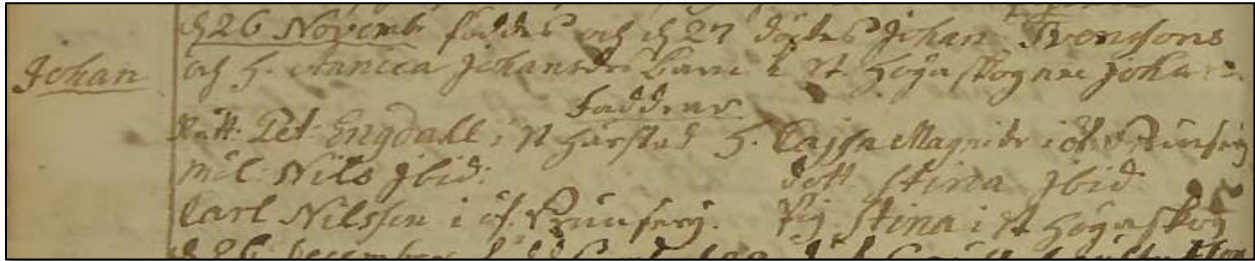 d 26 Novemb: föddes och d 27 döptes Johan Svensons
Johan
och h. Annica Johansdr barn i St. Högaskog nae Johan
Faddrar
Rått: Pet: Engdahl i N Harstad
H. Cajsa Magnidr i öf. Runserÿ
mål: Nils Jbid:
dott Stina Jbid:
Carl Nilsson i öf. Runserÿ.
Pig Stina i St Högaskog
d 26 December